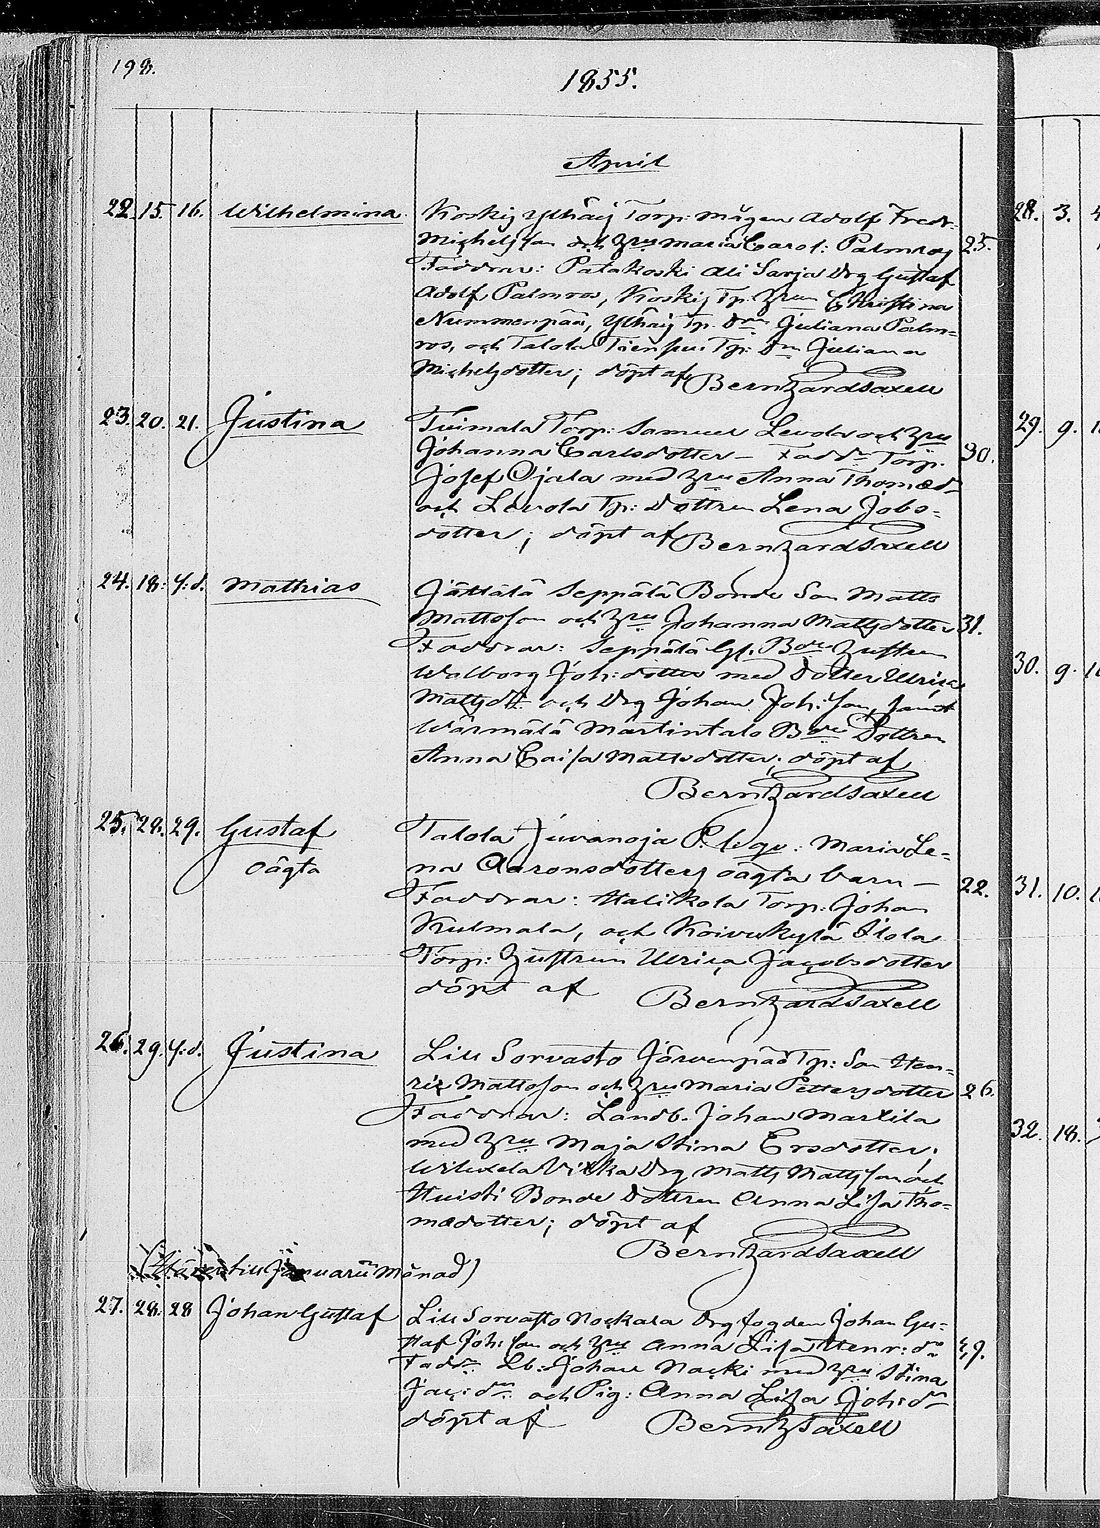 198.
1855.
April
22. 15. 16. Wilhelmina. Koskis Ylhäis Torp: mågen Adolf Fredr.
Michelsson och hru Maria Carol: Palmros 25.
Faddrar: Palakoski Ali Sarja Drg Gustaf
Adolf Palmros, Koskis Tp. hru Christina
Nummenpää, Ylhäis Tp. Drn Juliana Palm=
ros, och Talola Tp: Drn Juliana
Michelsdotter; döpt af Bernhard Saxell
23. 20. 21. Justina Tuimala Torp: Samuel Levola och hru
Johanna Carlsdotter — Faddr Torp. 30.
Josef Ojala med hru Anna Thomæd=
och Levola Tp: Dottren Lena Jobs=
dotter; döpt af Bernhard Saxell
24. 18: s:d. Mathias Jättälä Seppälä Bonde Son Matts
Mattsson och hru Johanna Mattsdotter 31.
Faddrar: Seppälä Bde hustrun
Walborg Joh:dotter med Dotter Ulrica
Mattsdtt och Drg Johan Joh:son, samt
Wärmälä Martintalo Bde Dottren
Anna Caisa Mattsdotter; döpt af
Bernhard Saxell
25. 28. 29. Gustaf Talola Juvanoja P. Maria Le=
oägta na Aaronsdotters oägta barn — 22.
Faddrar: Halikola Torp: Johan
Kulmala, och Koivukylä Ilola
Torp: hustrun Ulrica Jacobsdotter
döpt af Bernhard Saxell
26. 29. s:d. Justina Lill Sorvasto Järvenpää Tp: Son Hen=
ric Mattsson och hru Maria Pettersdotter 26.
Faddrar: Landb. Johan Markila
med hru Maja Stina Ersdotter;
Vikka Drg Matts Mattsson och
Huisti Bonde Dottren Anna Lisa Tho=
mædotter; döpt af
Bernhard Saxell
(Hörer till Januarii Månad)
27. 28. 28 Johan Gustaf Lill Sorvasto Nackala Drg fogden Johan Gu=
staf Joh:son och hru Anna Lisa Henr: dr 49.
Faddr Lb: Johan Nacki med hru Stina
Jac: dr och Pig: Anna Lisa Joh:dr
döpt af Bernh Saxell
28. 3.
29. 9.
30. 9.
31. 10.
32. 18.